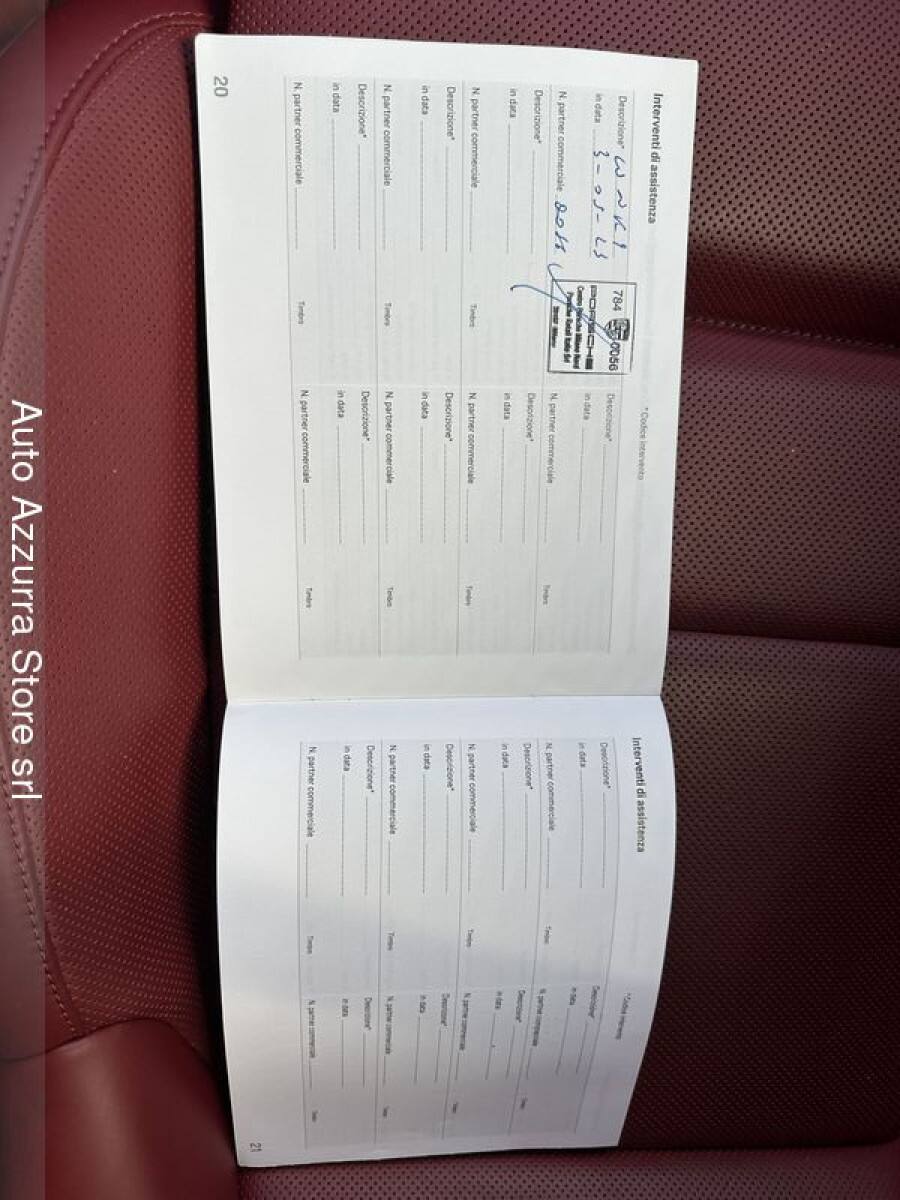 Interventi di assistenza
* Codice intervento
Descrizione*
in data
N. partner commerciale
784 0056
PORSCHE
Centro Porsche Milano Nord
Porsche Retail Italia Srl
Descrizione*
in data
N. partner commerciale
Timbro
Descrizione*
in data
N. partner commerciale
Timbro
Descrizione*
in data
N. partner commerciale
Timbro
Descrizione*
in data
N. partner commerciale
Timbro
Descrizione*
in data
N. partner commerciale
Timbro
Descrizione*
in data
N. partner commerciale
Timbro
Descrizione*
in data
N. partner commerciale
Timbro
20
Interventi di assistenza
*Codice intervento
Descrizione*
in data
N. partner commerciale
Timbro
Descrizione*
in data
N. partner commerciale
Timbro
Descrizione*
in data
N. partner commerciale
Timbro
Descrizione*
in data
N. partner commerciale
Timbro
Descrizione*
in data
N. partner commerciale
Timbro
Descrizione*
in data
N. partner commerciale
Timbro
Descrizione*
in data
N. partner commerciale
Timbro
Descrizione*
in data
N. partner commerciale
Timbro
21
Auto Azzurra Store srl